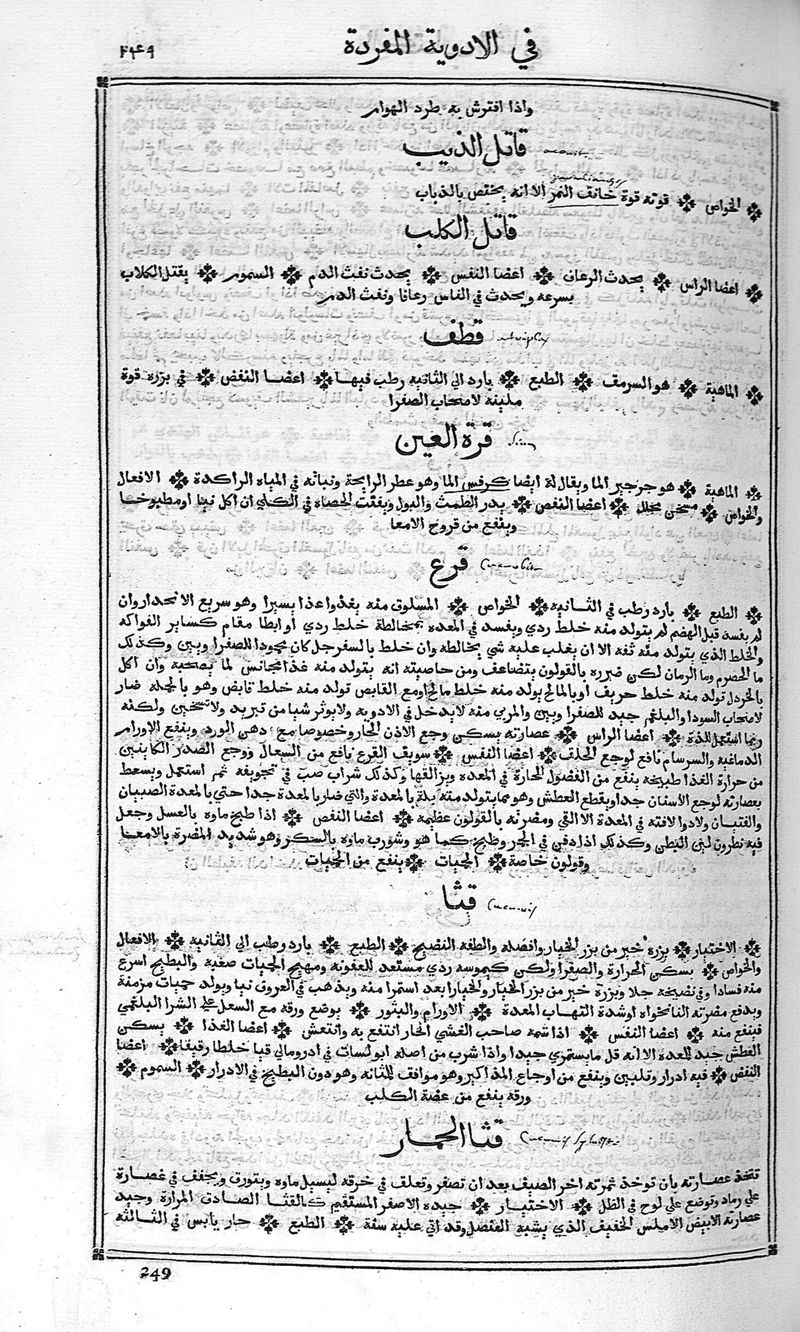 في الادوية المفردة
٢٤٩
واذا افترش به طرد الهوام
قاتل الذيب
الخواص ❖ قوته قوة خانق النمر الا انه يختص بالذياب
قاتل الكلب
اعضا الراس ❖ يحدث الرعاف ❖ اعضا النفس ❖ يحدث نفث الدم ❖ السموم ❖ يقتل الكلاب
بسرعه ويحدث في الناس رعافا ونفث الدم
قطف
الماهية ❖ هو السرمق ❖ الطبع ❖ بارد الي الثانيه رطب فيها ❖ اعضا النفض ❖ في بزره قوة
ملينه لاصحاب الصفرا
قرة العين
الماهية ❖ هو جرجير الما ويقال له ايضا كرفس الما وهو عطر الرايحة ونباته في المياه الراكدة ❖ الافعال
والخواص ❖ مسخن محلل ❖ اعضا النفض ❖ يدر الطمث والبول ويفتت الحصاه في الكلي ان اكل نيا او مطبوخا
وينفع من قروح الامعا
قرع
الطبع ❖ بارد رطب في الثانيه ❖ الخواص ❖ المسلوق منه يغذو غذا يسيرا وهو سريع الانحدار وان
لم يفسد قبل الهضم لم يتولد منه خلط ردي ويفسد في المعده بمخالطة خلط ردي او ابطا مقام كساير الفواكه
والخلط الذي يتولد منه تفه الا ان يغلب عليه شي يخالطه وان خلط بالسفرجل كان محمودا للصفراويين وكذلك
ما الحصرم وما الرمان لكن ضرره بالقولون يتضاعف ومن خاصيته انه يتولد منه غذا مجانس لما يصحبه وان اكل
بالخردل تولد منه خلط حريف او بالمالح يولد منه خلط مالح او مع القابض تولد منه خلط قابض وهو بالجمله ضار
لاصحاب السودا والبلغم جيد للصفراويين والمربي منه لا يدخل في الادويه ولا يوثر شيا من تبريد ولا تسخين ولكنه
ربما استعمل للذة ❖ اعضا الراس ❖ عصارته يسكن وجع الاذن الحار وخصوصا مع دهن الورد وينفع الاورام
الدماغيه والسرسام نافع لوجع الحلق ❖ اعضا النفس ❖ سويق القرع نافع من السعال ووجع الصدر الكاينين
من حرارة الغذا طبيخه ينفع من الفضول الحارة في المعده ويزلقها وكذلك شراب صب في تجويفه ثم استعمل ويسعط
بعصارته لوجع الاسنان جدا ويقطع العطش وهو مما يتولد منه بلة بالمعدة والني ضار بالمعدة جدا حتي بالمعدة الصبيان
والفتيان ولا دوا لافته في المعدة الا القي ومضرته بالقولون عظيمه ❖ اعضا النفض ❖ اذا طبخ ماوه بالعسل وجعل
فيه نطرون لين البطن وكذلك اذا دفن في الجمر وطبخ كما هو وشورب ماوه بالسكر وهو شديد المضرة بالامعا
وقولون خاصة ❖ الحميات ❖ ينفع من الحميات
قثا
الاختيار ❖ بزره خير من بزر الخيار وافضله والطفه النضيج ❖ الطبع ❖ بارد وطب الي الثانيه ❖ الافعال
والخواص ❖ يسكن الحرارة والصفرا ولكن كيموسه ردي مستعد للعفونه ومهيج الحميات صعبه والبطيخ اسرع
منه فسادا وفي نضيجه جلا وبزره خير من بزر الخيار والخيار ابعد استمرا منه ويذهب في العروق نيا ويولد حميات مزمنة
ويدفع مضرته النانخواه او شدة التهاب المعدة ❖ الاورام والبثور ❖ يوضع ورقه مع العسل علي الشرا البلغمي
فينفع منه ❖ اعضا النفس ❖ اذا شمه صاحب الغشي الحار انتفع به وانتعش ❖ اعضا الغذا ❖ يسكن
العطش جيد للمعده الا انه قل ما يستمري جيدا واذا شرب من اصله ابولسات في ادرومالي قيا خلطا رقيقا ❖ اعضا
النفض ❖ فيه ادرار وتليين وينفع من اوجاع المذاكير وهو موافق للمثانه وهو دون البطيخ في الادرار ❖ السموم ❖
ورقه ينفع من عضة الكلب
قثا الحمار
تتخذ عصارته بان توخذ ثمرته اخر الصيف بعد ان تصفر وتعلف في خرقه ليسيل ماوه ويتورق ويجفف في غصارة
علي رماد وتوضع علي لوح في الظل ❖ الاختيار ❖ جيده الاصفر المستقيم كالقثا الصادق المرارة وجيد
عصارته الابيض الاملس الخفيف الذي يشبه العنصل وقد اتي عليه سنة ❖ الطبع ❖ حار يابس في الثالثه
249